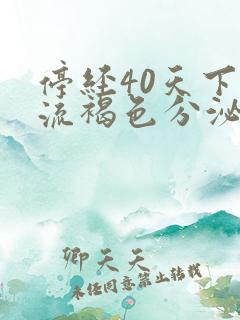 停经40天下
流褐色分泌
卿天天
未经同意禁止转载